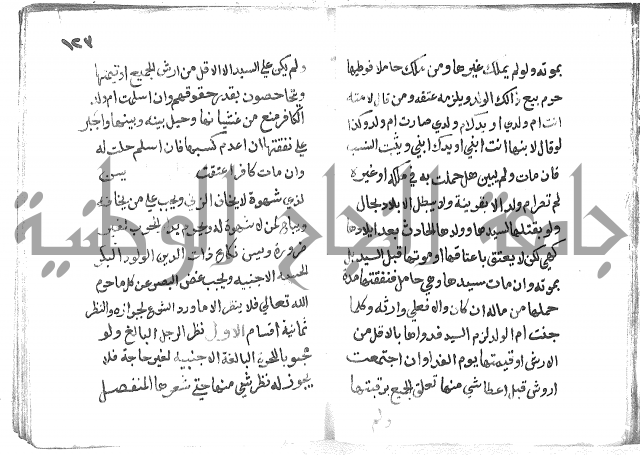 بموته ولو لم يملك غيرها ومن ملك حاملا فوطيها
حرم بيع ذالك الولد ويلزمه عتقه ومن قال لامته
انت ام ولدي او يدك ام ولدي صارت ام ولد وكذا
لو قال لابنها انت ابني او يدك ابني ويثبت النسب
فان مات ولم يبين هل حملت به في ملكه او غيره
لم تصر ام ولد الا بقرينة ولا يبطل الايلاد بحال
ولو بقتلها لسيدها وولدها الحادث بعد ايلادها
كهي لكن لا يعتق باعتاقها او موتها قبل السيد بل
بموته وان مات سيدها وهي حامل فنفقتها مدة
حملها من ماله ان كان والا فعلى وارثه وكلما
جنت ام الولد لزم السيد فداوها بالاقل من
الارش او قيمتها يوم الفدا وان اجتمعت
اروش قبل اعطا شي منها تعلق الجميع برقبتها
ولم
١٢٣
ولم يكن على السيد الا الاقل من ارش الجميع او قيمتها
ويتحاصون بقدر حقوقهم وان اسلمت ام ولد
الكافر منع من غشيانها وحيل بينه وبينها واجبر
على نفقتها ان عدم كسبها فان اسلم حلت له
وان مات كافرا عتقت يسن
لذي شهوة لا يخاف الزنى ويجب على من يخافه
ويباح لمن لا شهوة له ويحرم بدار الحرب لغير
ضرورة ويسن نكاح ذات الدين الولود البكر
الحسيبة الاجنبيه ويجب غض البصر عن كل ما حرم
الله تعالى فلا ينظر الا ما ورد الشرع بجوازه والنظر
ثمانية اقسام الاول نظر الرجل البالغ ولو
مجبوبا للحرة البالغة الاجنبية لغير حاجة فلا
يجوز له نظر شي منها حتى شعرها المنفصل
جامعة النجاح الوطنية